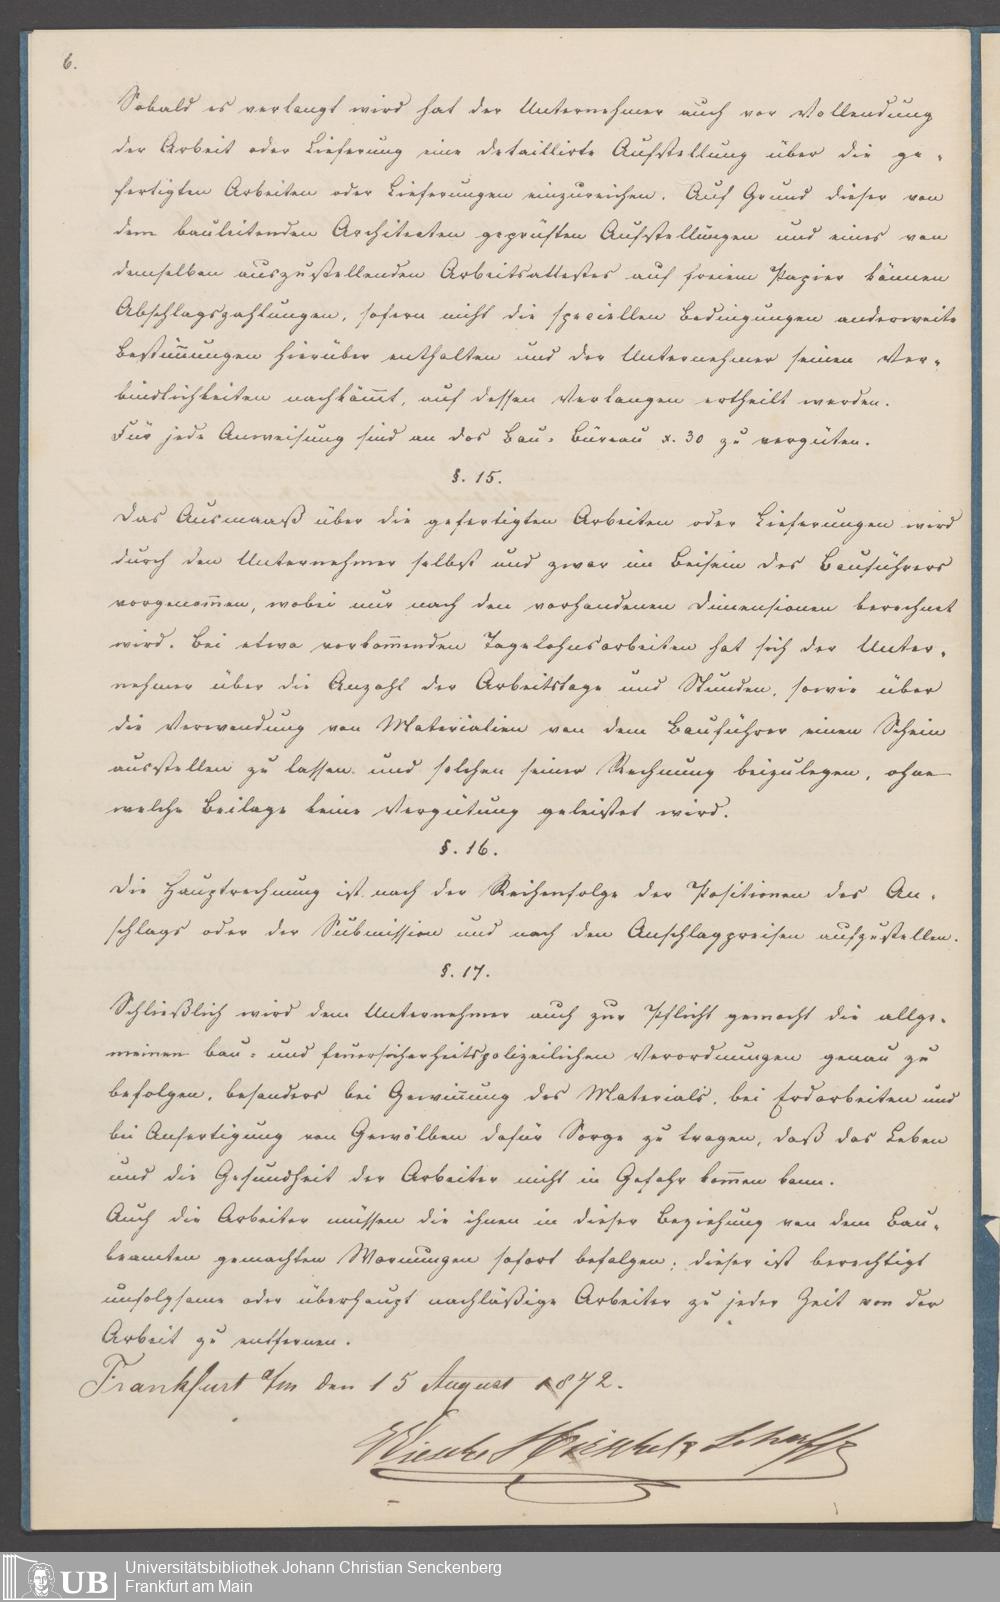 6.
Sobald es verlangt wird hat der Unternehmer auch vor Vollendung
der Arbeit oder Lieferung eine detaillirte Aufstellung über die ge-
fertigten Arbeiten oder Lieferungen einzureichen. Auf Grund dieser von
dem bauleitenden Architecten geprüften Aufstellungen und eines von
demselben auszustellenden Arbeitsattestes auf freiem Papier können
Abschlagszahlungen, sofern nicht die speciellen Bedingungen anderweite
Bestim̅ungen hierüber enthalten und der Unternehmer seinen Ver-
bindlichkeiten nachkom̅t, auf dessen Verlangen ertheilt werden.
Für jede Anweisung sind an das Bau-Büreau x. 30 zu vergüten.
§. 15.
Das Ausmaaß über die gefertigten Arbeiten oder Lieferungen wird
durch den Unternehmer selbst und zwar im Beisein des Bauführers
vorgenom̅en, wobei nur nach den vorhandenen Dimensionen berechnet
wird. Bei etwa vorkom̅enden Tagelohnsarbeiten hat sich der Unter-
nehmer über die Anzahl der Arbeitstage und Stunden, sowie über
die Verwendung von Materialien von dem Bauführer einen Schein
ausstellen zu lassen und solchen seiner Rechnung beizulegen, ohne
welche Beilage keine Vergütung geleistet wird.
§. 16.
Die Hauptrechnung ist nach der Reihenfolge der Positionen des An-
schlags oder der Submission und nach den Anschlagpreisen aufzustellen.
§. 17.
Schließlich wird dem Unternehmer auch zur Pflicht gemacht die allge-
meinen bau- und feuersicherheitspolizeilichen Verordnungen genau zu
befolgen, besonders bei Gewin̅ung des Materials, bei Erdarbeiten und
bei Anfertigung von Gewölben dafür Sorge zu tragen, daß das Leben
und die Gesundheit der Arbeiter nicht in Gefahr kom̅en kann.
Auch die Arbeiter müssen die ihnen in dieser Beziehung von dem Bau-
beamten gemachten Warnungen sofort befolgen; dieser ist berechtigt
unfolgsame oder überhaupt nachläßige Arbeiter zu jeder Zeit von der
Arbeit zu entfernen.
Frankfurt a/m den 15 August 1872.
UB
Universitätsbibliothek Johann Christian Senckenberg
Frankfurt am Main